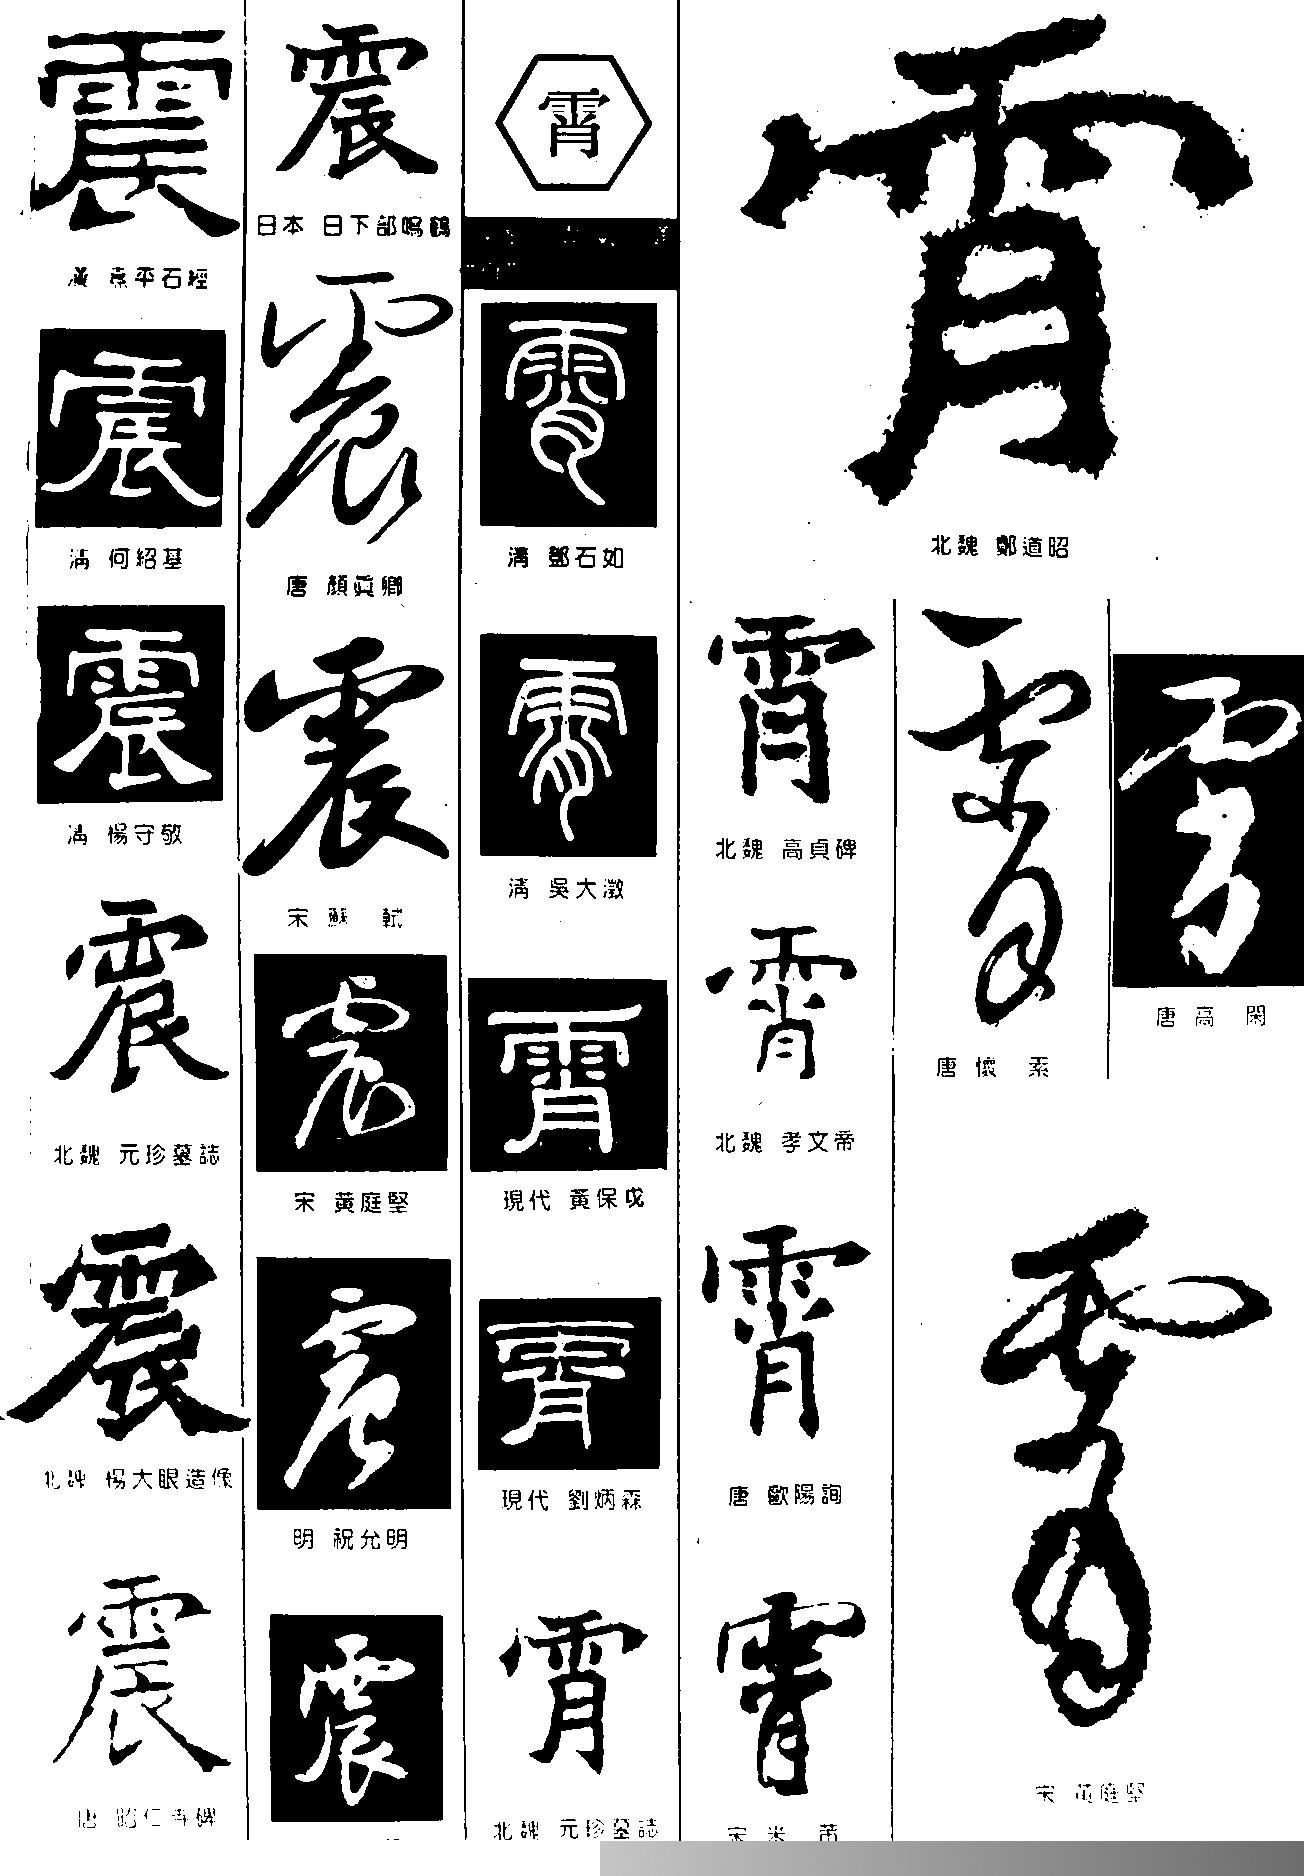 震
漢 熹平石經
震
清 何紹基
震
清 楊守敬
震
北魏 元珍墓誌
震
北魏 楊大眼造像
震
唐 昭仁寺碑
震
日本 日下部鳴鶴
震
唐 顏真卿
震
宋 蘇 軾
震
宋 黃庭堅
震
明 祝允明
震
霄
霄
清 鄧石如
霄
清 吳大澂
霄
現代 黃保戉
霄
現代 劉炳森
霄
北魏 元珍墓誌
霄
北魏 鄭道昭
霄
北魏 高貞碑
霄
北魏 孝文帝
霄
唐 歐陽詢
霄
宋 米 芾
霄
唐 懷 素
霄
唐 高 閑
霄
宋 黃庭堅